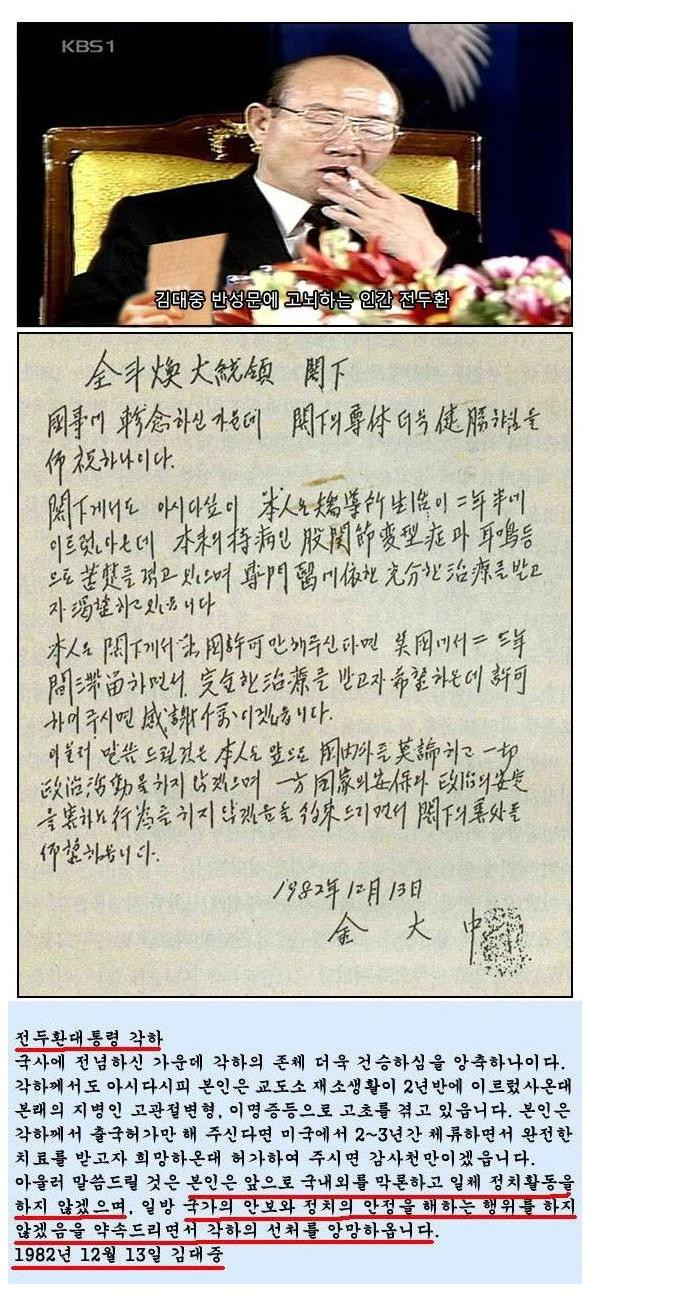 KBS1
김대중 반성문에 고뇌하는 인간 전두환
全斗煥大統領 閣下
國事에 軫念하신 가운데 閣下의 尊体 더욱 健勝하심을
仰祝하나이다.
閣下께서도 아시다싶이 本人은 矯導所 生活이 二年半에
이르렀아온데 本来의 持病인 股関節変型症과 耳鳴等
으로 苦楚를 겪고 있으며 専門醫에 依한 充分한 治療를 받고
자 渴望하고 있읍니다
本人은 閣下께서 出国許可만 해주신다면 美國에서 二 三年
間 滞留하면서 完全한 治療를 받고자 希望하온데 許可
하여 주시면 感謝千萬이겠읍니다.
아울러 말씀 드릴 것은 本人은 앞으로 國内外를 莫論하고 一切
政治活動을 하지 않겠으며 一方 国家의 安保와 政治의 安定
을 害하는 行為를 하지 않겠음을 約束드리면서 閣下의 善処를
仰望하옵니다.
1982年 12月 13日
金 大 中
전두환대통령 각하
국사에 전념하신 가운데 각하의 존체 더욱 건승하심을 앙축하나이다.
각하께서도 아시다시피 본인은 교도소 재소생활이 2년반에 이르렀사온대
본래의 지병인 고관절변형, 이명증등으로 고초를 겪고 있읍니다. 본인은
각하께서 출국허가만 해 주신다면 미국에서 2~3년간 체류하면서 완전한
치료를 받고자 희망하온대 허가하여 주시면 감사천만이겠읍니다.
아울러 말씀드릴 것은 본인은 앞으로 국내외를 막론하고 일체 정치활동을
하지 않겠으며, 일방 국가의 안보와 정치의 안정을 해하는 행위를 하지
않겠음을 약속드리면서 각하의 선처를 앙망하옵니다.
1982년 12월 13일 김대중